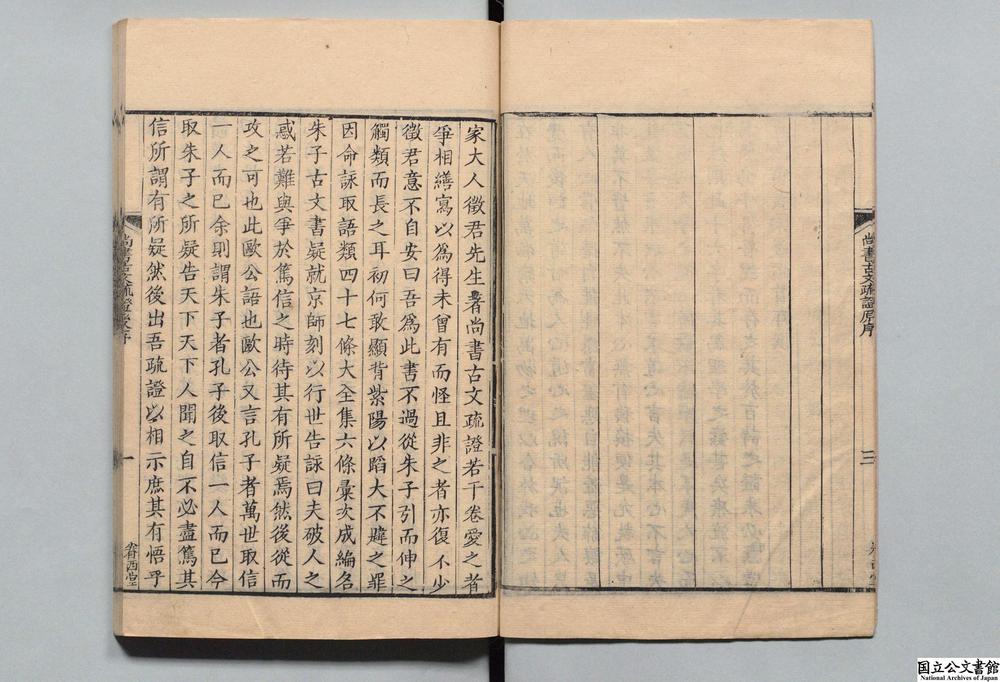 尚書古文疏證原序
三
家大人徵君先生著尚書古文疏證若干卷愛之者
爭相繕寫以為得未曾有而怪且非之者亦復不少
徵君意不自安曰吾為此書不過從朱子引而伸之
觸類而長之耳初何敢顯背紫陽以蹈大不韙之罪
因命詠取語類四十七條大全集六條彙次成編名
朱子古文書疑就京師刻以行世告詠曰夫破人之
惑若難與爭於篤信之時待其有所疑焉然後從而
攻之可也此歐公語也歐公又言孔子者萬世取信
一人而已余則謂朱子者孔子後取信一人而已今
取朱子之所疑告天下天下人聞之自不必盡篤其
信所謂有所疑然後出吾疏證以相示庶其有悟乎
尚書古文疏證後序
一
眷西堂
国立公文書館
National Archives of Japan